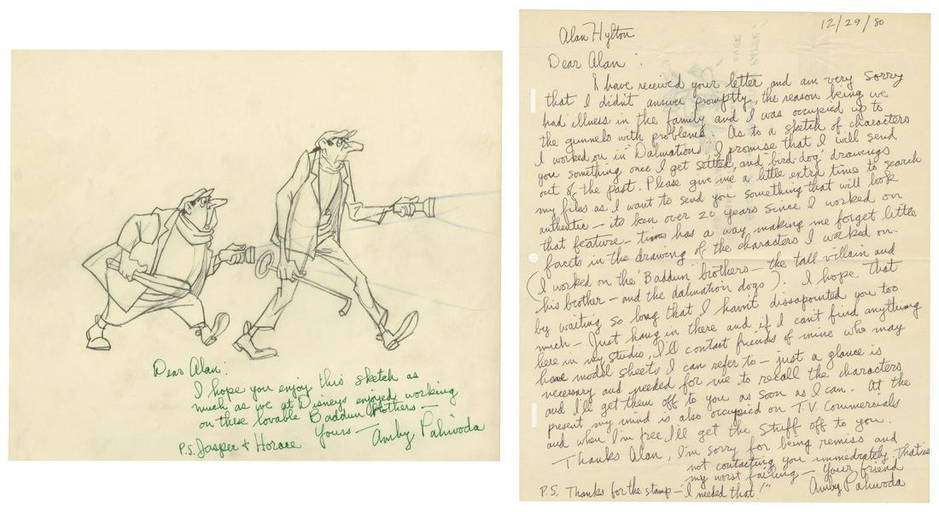 Dear Alan:
I hope you enjoy this sketch as
much as we at Disneys enjoyed working
on these lovable Baddun Brothers —
P.S. Jasper + Horace Yours — Amby Paliwoda
12/29/80
Alan Hylton
Dear Alan:
I have received your letter and am very sorry
that I didn't answer promptly, the reason being we
had illness in the family and I was occupied up to
the gunnels with problems. As to a sketch of characters
I worked on in "Dalmation" I promise that I will send
you something once I get settled, and 'bird-dog' drawings
out of the past. Please give me a little extra time to search
my files as I want to send you something that will look
authentic — its ben over 20 years since I worked on
that feature — time has a way making me forget little
facets in the drawing of the characters I worked on.
(I worked on the 'Baddun' brothers — the tall villain and
his brother — and the dalmation dogs). I hope that
by waiting so long that I havn't dissapointed you too
much — Just hang in there and if I can't find anything
here in my studio, I'll contact friends of mine who may
have model sheets I can refer to — just a glance is
necessary and needed for me to recall the characters
and I'll get them off to you as soon as I can. At the
present my mind is also occupied on T.V. Commercials
and when I'm free I'll get the stuff off to you.
Thanks Alan, I'm sorry for being remiss and
not contacting you immediately, that's
my worst failing — your friend
P.S. Thanks for the stamp — "I needed that!" Amby Paliwoda